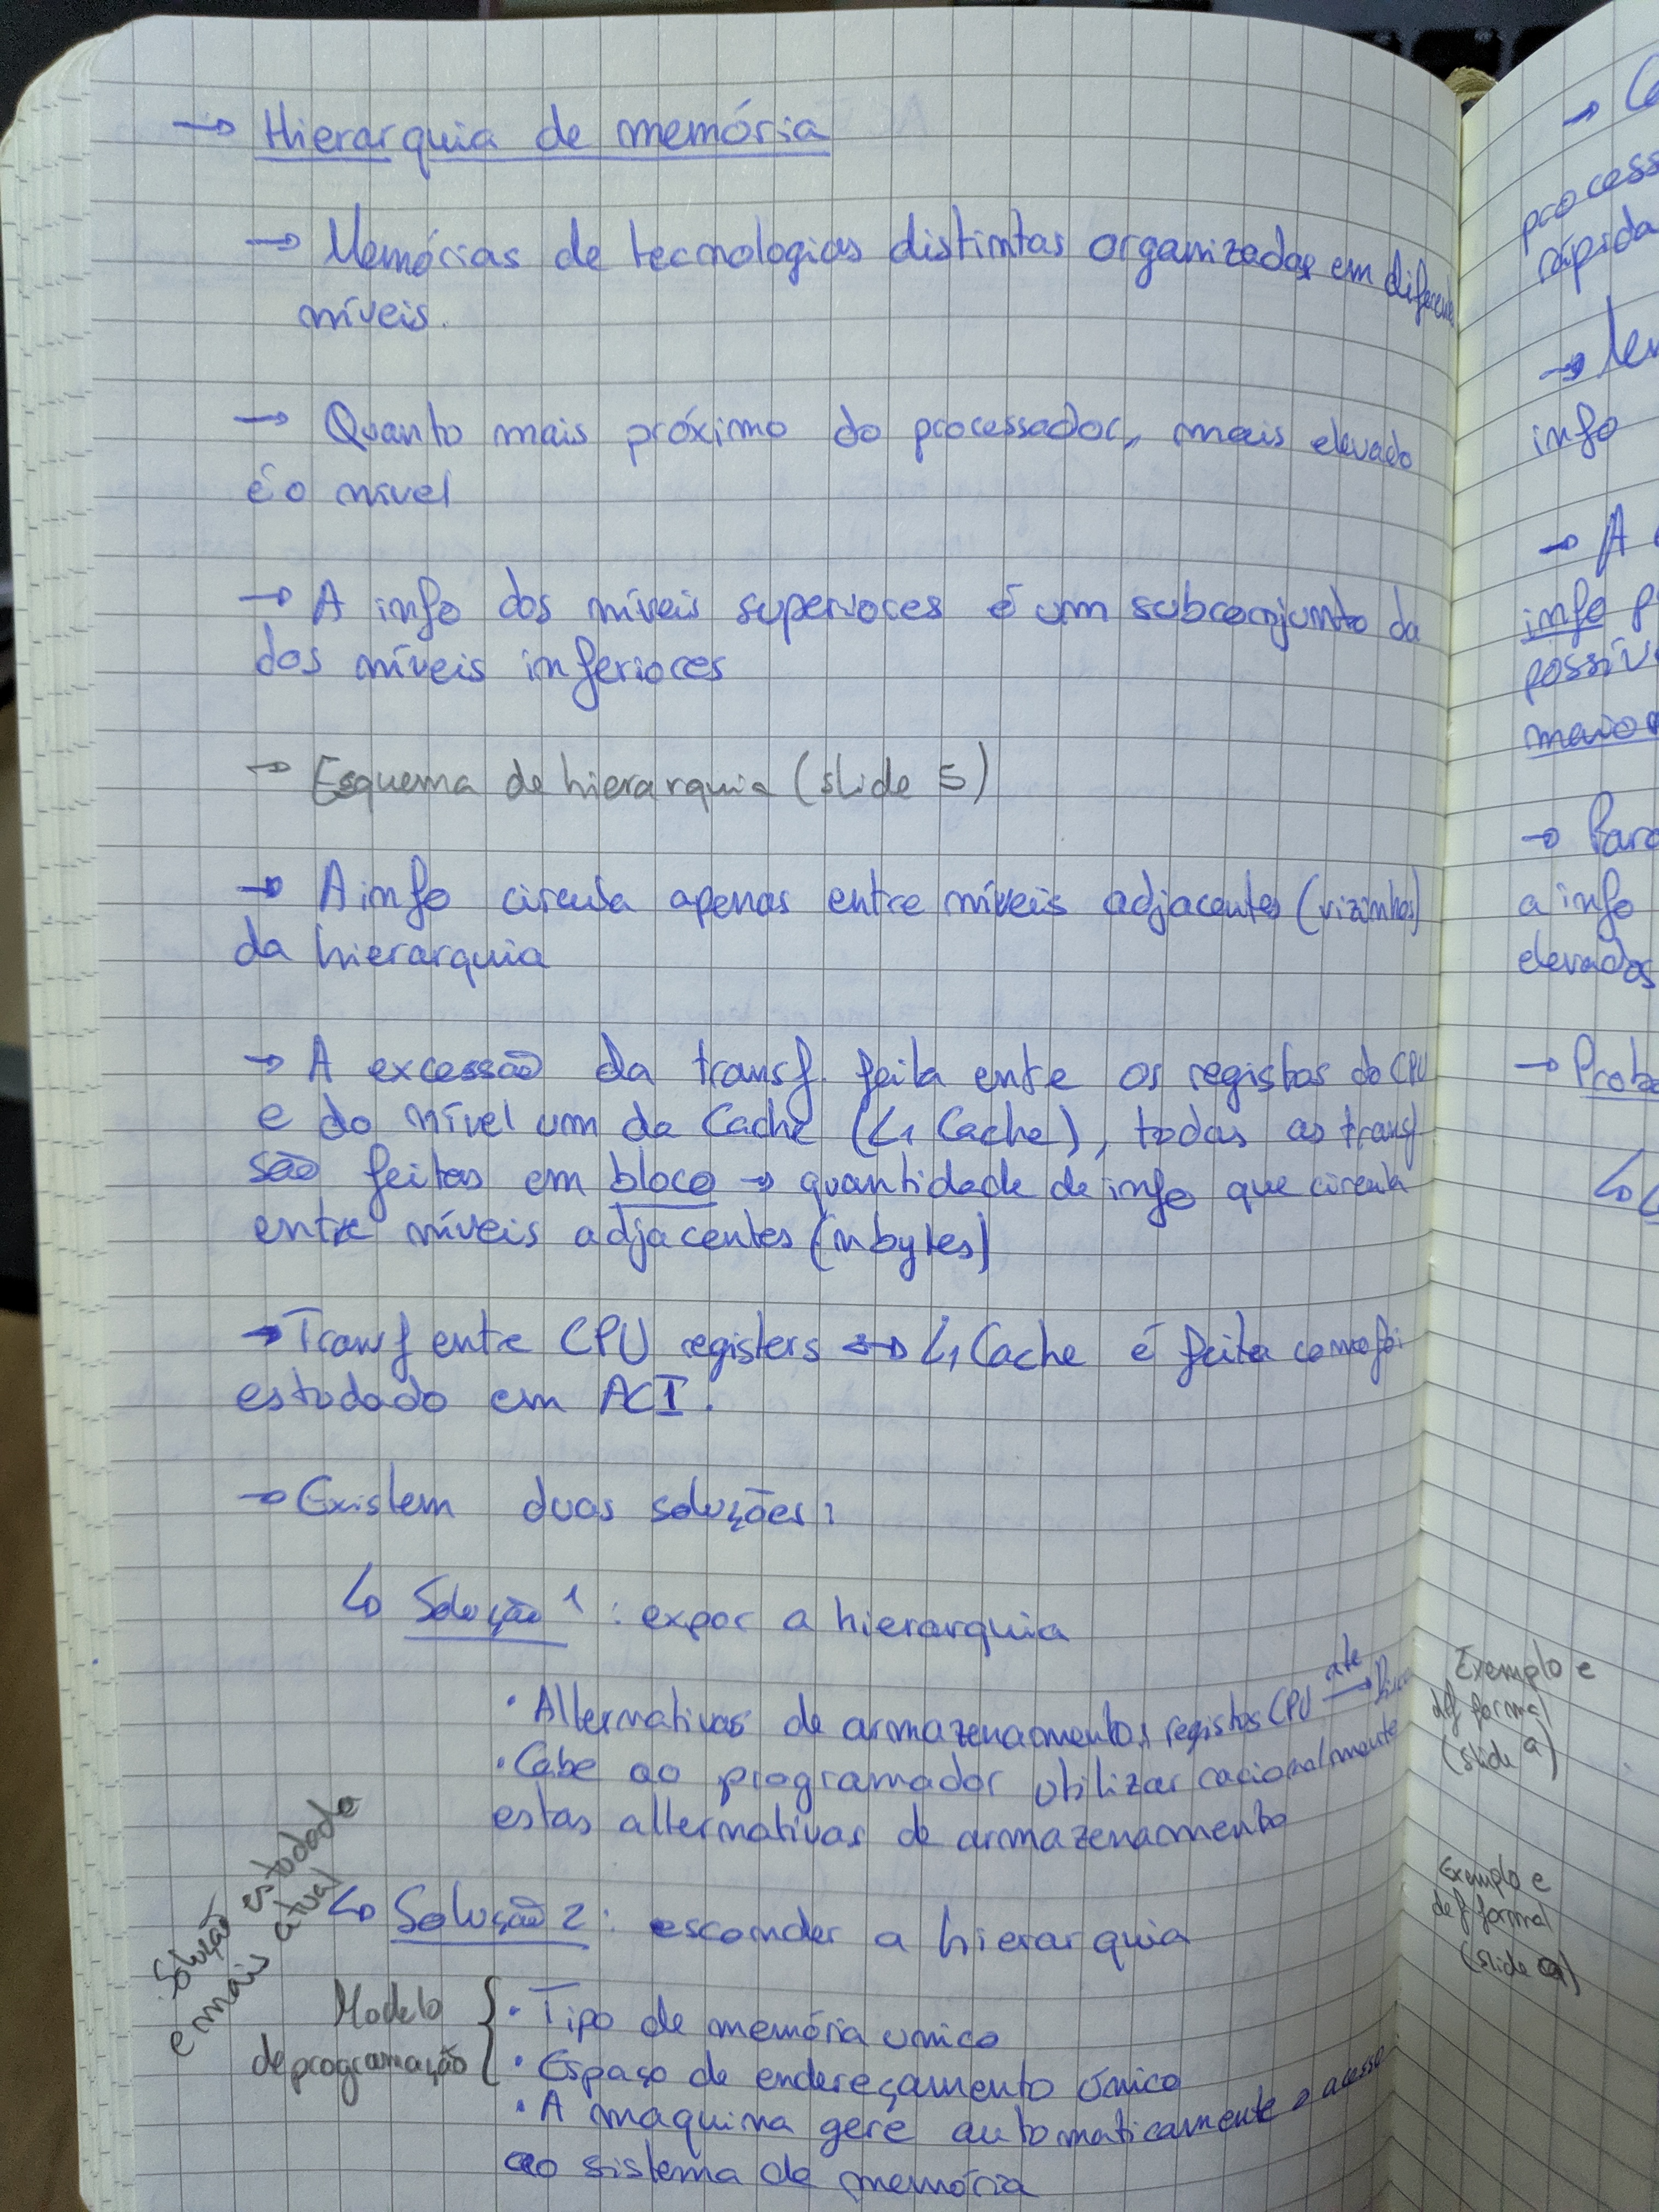 → Hierarquia de memória
→ Memórias de tecnologias distintas organizadas em diferentes
níveis.
→ Quanto mais próximo do processador, mais elevado
é o nível
→ A info dos níveis superiores é um subconjunto da
dos níveis inferiores
→ Esquema de hierarquia (slide 5)
→ A info circula apenas entre níveis adjacentes (vizinhos)
da hierarquia
→ A excessão da transf. feita entre os registos do CPU
e do nível um da Cache (L1 Cache), todas as transf
são feitas em bloco → quantidade de info que circula
entre níveis adjacentes (n bytes)
→ Transf entre CPU registers ↔ L1 Cache é feita como foi
estudado em ACI.
→ Existem duas soluções:
↳ Solução 1 : expor a hierarquia
• Alternativas de armazenamento, registos CPU até → Disco
• Cabe ao programador utilizar racionalmente
estas alternativas de armazenamento
Exemplo e
def formal
(slide 9)
Solução estudada
e mais atual
↳ Solução 2 : esconder a hierarquia
Exemplo e
def formal
(slide 9)
Modelo
de programação
• Tipo de memória unico
• Espaço de endereçamento único
• A maquina gere automaticamente o acesso
ao sistema de memória
process
rápida
info
→ A
info p
possív
maior
→ Para
a info
elevados
→ Prob